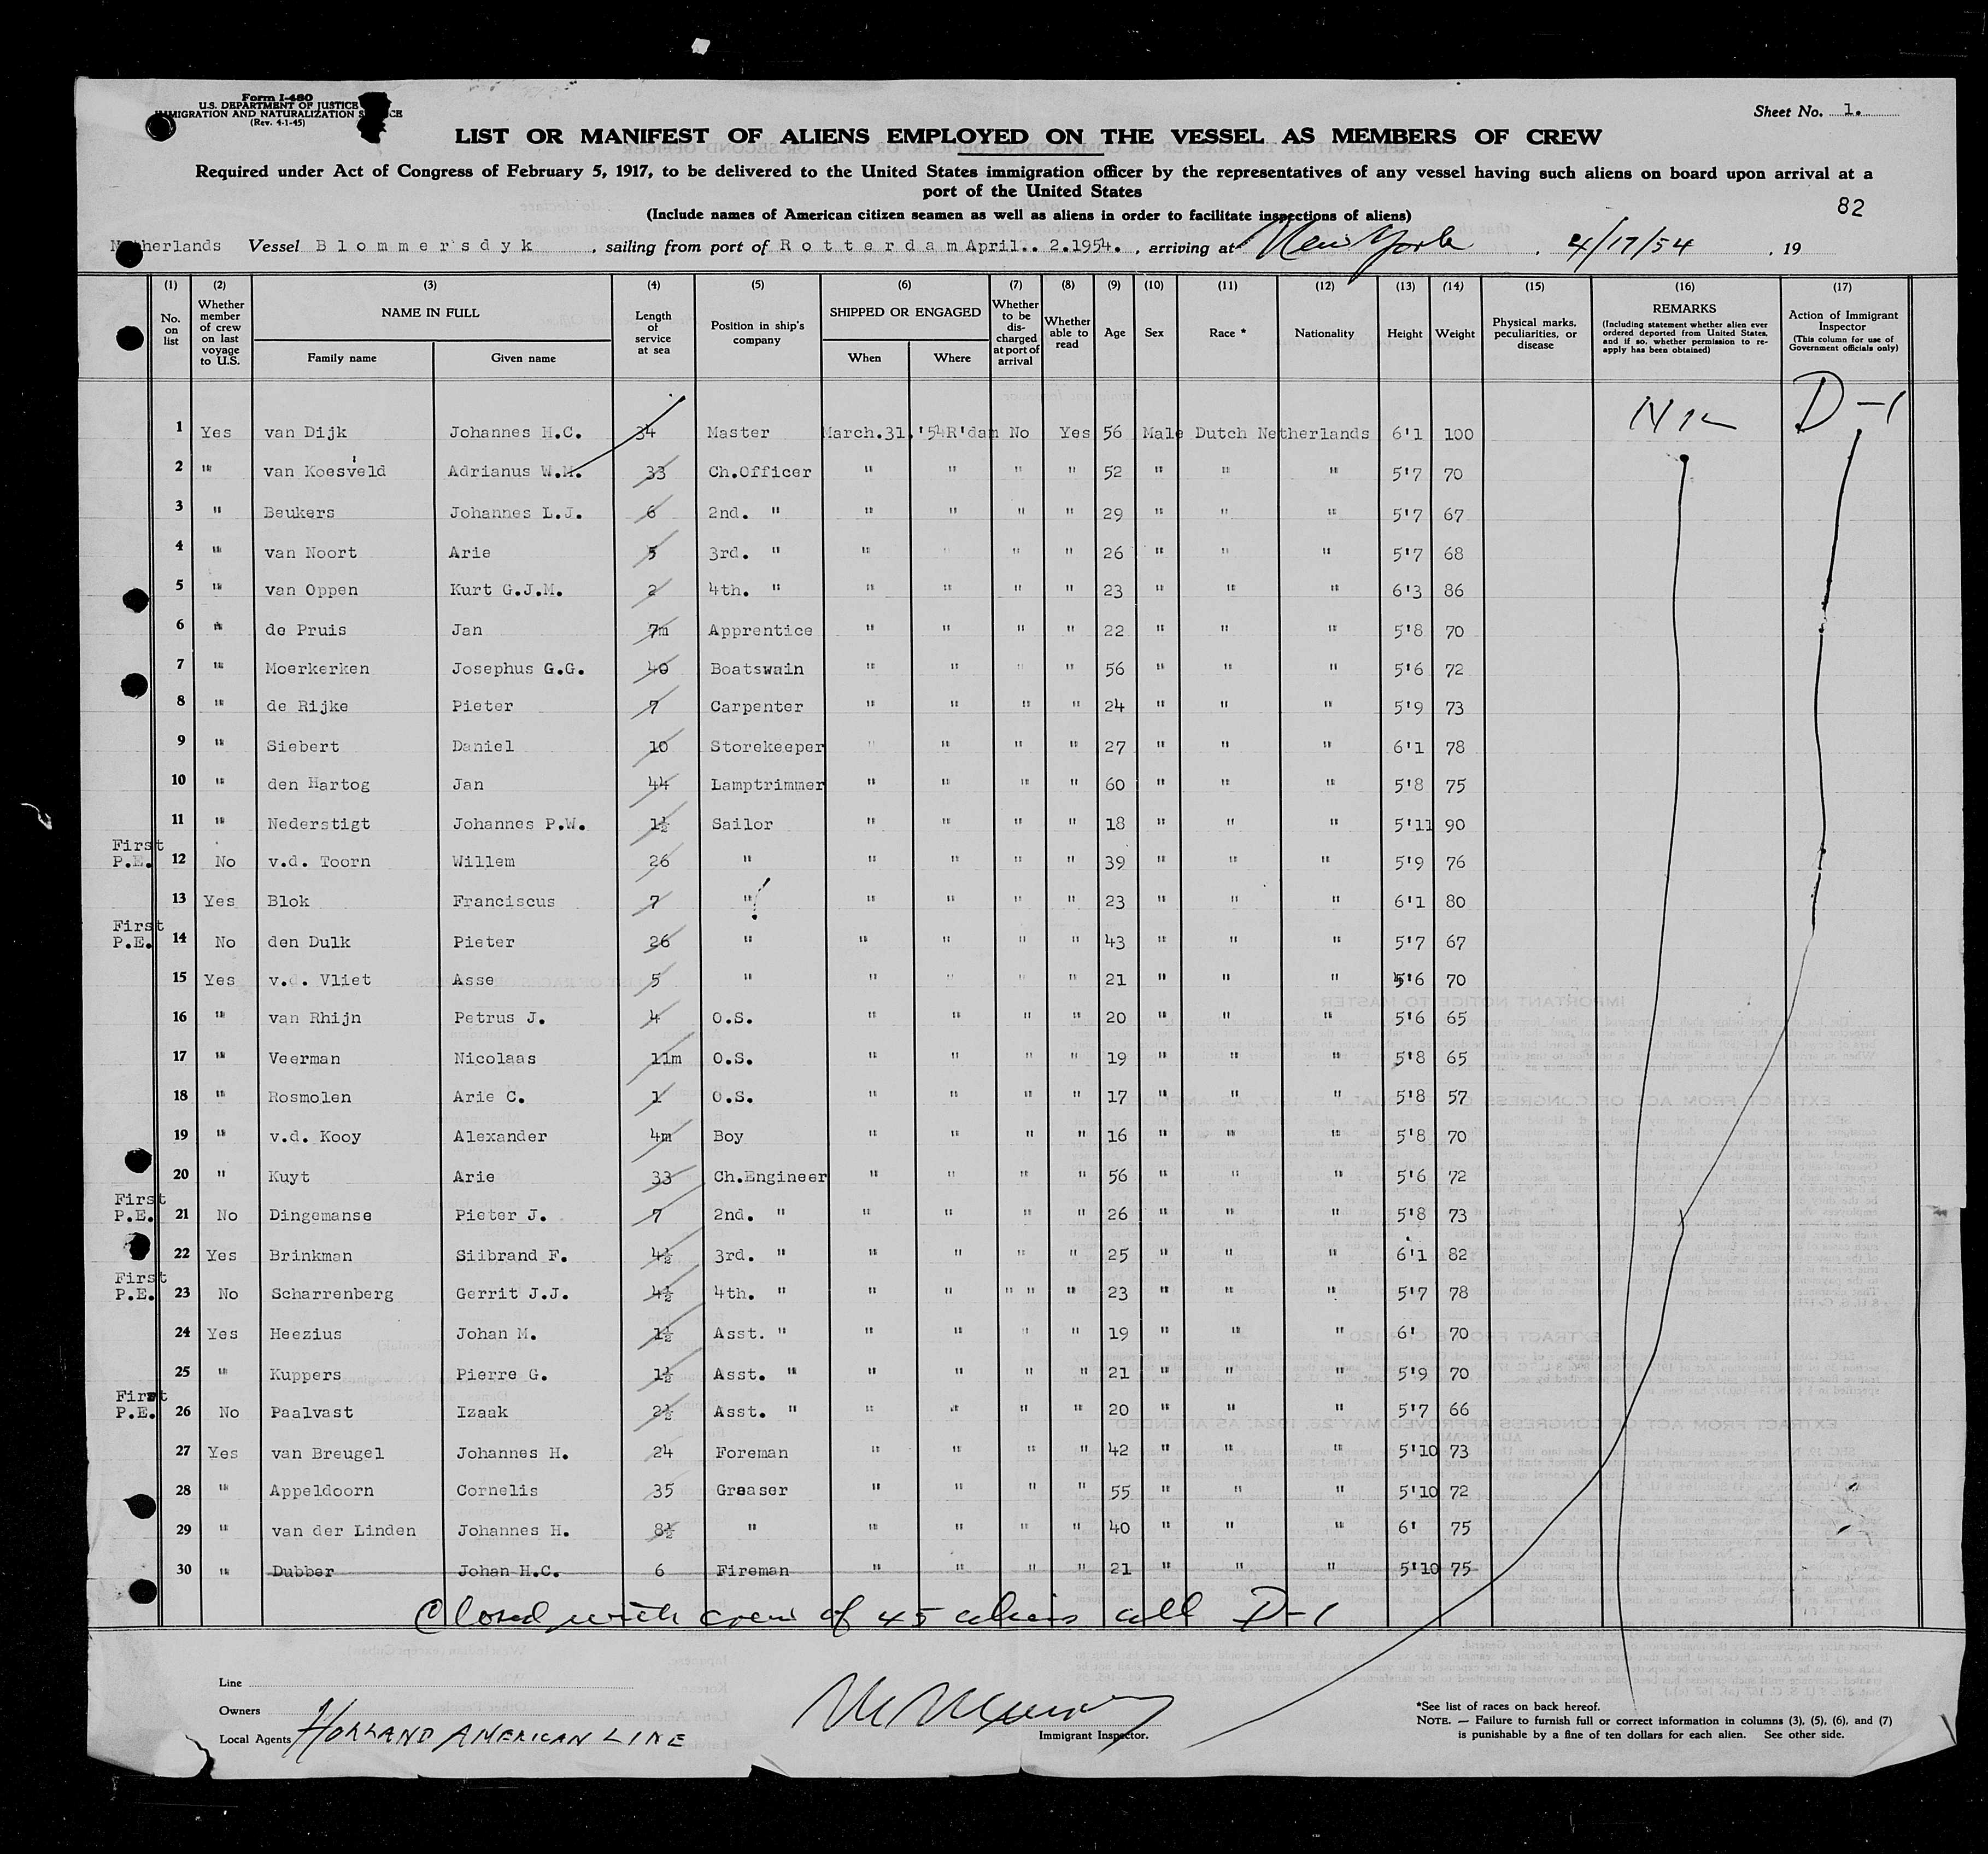 Form I-480
U.S. DEPARTMENT OF JUSTICE
IMMIGRATION AND NATURALIZATION S CE
(Rev. 4-1-45)
Sheet No. 1.
LIST OR MANIFEST OF ALIENS EMPLOYED ON THE VESSEL AS MEMBERS OF CREW
Required under Act of Congress of February 5, 1917, to be delivered to the United States immigration officer by the representatives of any vessel having such aliens on board upon arrival at a
port of the United States
(Include names of American citizen seamen as well as aliens in order to facilitate inspections of aliens)
82
Netherlands Vessel Blommersdyk, sailing from port of Rotterdam April.. 2.1954., arriving at New York. 4/17/54, 19
(1) (2) (3) (4) (5) (6) (7) (8) (9) (10) (11) (12) (13) (14) (15) (16) (17)
No. on list
Whether member of crew on last voyage to U.S.
NAME IN FULL
Family name Given name
Length of service at sea
Position in ship's company
SHIPPED OR ENGAGED
When Where
Whether to be discharged at port of arrival
Whether able to read
Age
Sex
Race *
Nationality
Height
Weight
Physical marks, peculiarities, or disease
REMARKS
(Including statement whether alien ever ordered deported from United States, and if so, whether permission to re-apply has been obtained)
Action of Immigrant Inspector
(This column for use of Government officials only)
D-1
1 Yes van Dijk Johannes H.C. 34 Master March.31.'54 R'dam No Yes 56 Male Dutch Netherlands 6'1 100
2 " van Koesveld Adrianus W.M. 33 Ch.Officer " " " " 52 " " " 5'7 70
3 " Beukers Johannes L.J. 6 2nd. " " " " " 29 " " " 5'7 67
4 " van Noort Arie 5 3rd. " " " " " 26 " " " 5'7 68
5 " van Oppen Kurt G.J.M. 2 4th. " " " " " 23 " " " 6'3 86
6 " de Pruis Jan 7m Apprentice " " " " 22 " " " 5'8 70
7 " Moerkerken Josephus G.G. 40 Boatswain " " " " 56 " " " 5'6 72
8 " de Rijke Pieter 7 Carpenter " " " " 24 " " " 5'9 73
9 " Siebert Daniel 10 Storekeeper " " " " 27 " " " 6'1 78
10 " den Hartog Jan 44 Lamptrimmer " " " " 60 " " " 5'8 75
11 " Nederstigt Johannes P.W. 1½ Sailor " " " " 18 " " " 5'11 90
First
P.E. 12 No v.d. Toorn Willem 26 " " " " " 39 " " " 5'9 76
13 Yes Blok Franciscus 7 " " " " " 23 " " " 6'1 80
First
P.E. 14 No den Dulk Pieter 26 " " " " " 43 " " " 5'7 67
15 Yes v.d. Vliet Asse 5 " " " " " 21 " " " 5'6 70
16 " van Rhijn Petrus J. 4 O.S. " " " " 20 " " " 5'6 65
17 " Veerman Nicolaas 11m O.S. " " " " 19 " " " 5'8 65
18 " Rosmolen Arie C. 1 O.S. " " " " 17 " " " 5'8 57
19 " v.d. Kooy Alexander 4m Boy " " " " 16 " " " 5'8 70
20 " Kuyt Arie 33 Ch.Engineer " " " " 56 " " " 5'6 72
First
P.E. 21 No Dingemanse Pieter J. 7 2nd. " " " " " 26 " " " 5'8 73
22 Yes Brinkman Siibrand F. 4½ 3rd. " " " " " 25 " " " 6'1 82
First
P.E. 23 No Scharrenberg Gerrit J.J. 4½ 4th. " " " " " " 23 " " " 5'7 78
24 Yes Heezius Johan M. 1½ Asst. " " " " " 19 " " " 6' 70
25 " Kuppers Pierre G. 1½ Asst. " " " " " 21 " " " 5'9 70
First
P.E. 26 No Paalvast Izaak 2½ Asst. " " " " " 20 " " " 5'7 66
27 Yes van Breugel Johannes H. 24 Foreman " " " " 42 " " " 5'10 73
28 " Appeldoorn Cornelis 35 Greaser " " " " 55 " " " 5'10 72
29 " van der Linden Johannes H. 8½ " " " " " 40 " " " 6' 75
30 " Dubber Johan H.C. 6 Fireman " " " " 21 " " " 5'10 75
Closed with crew of 45 aliens all D-1
Line
Owners
Local Agents HOLLAND AMERICAN LINE
Immigrant Inspector.
*See list of races on back hereof.
NOTE. — Failure to furnish full or correct information in columns (3), (5), (6), and (7)
is punishable by a fine of ten dollars for each alien. See other side.